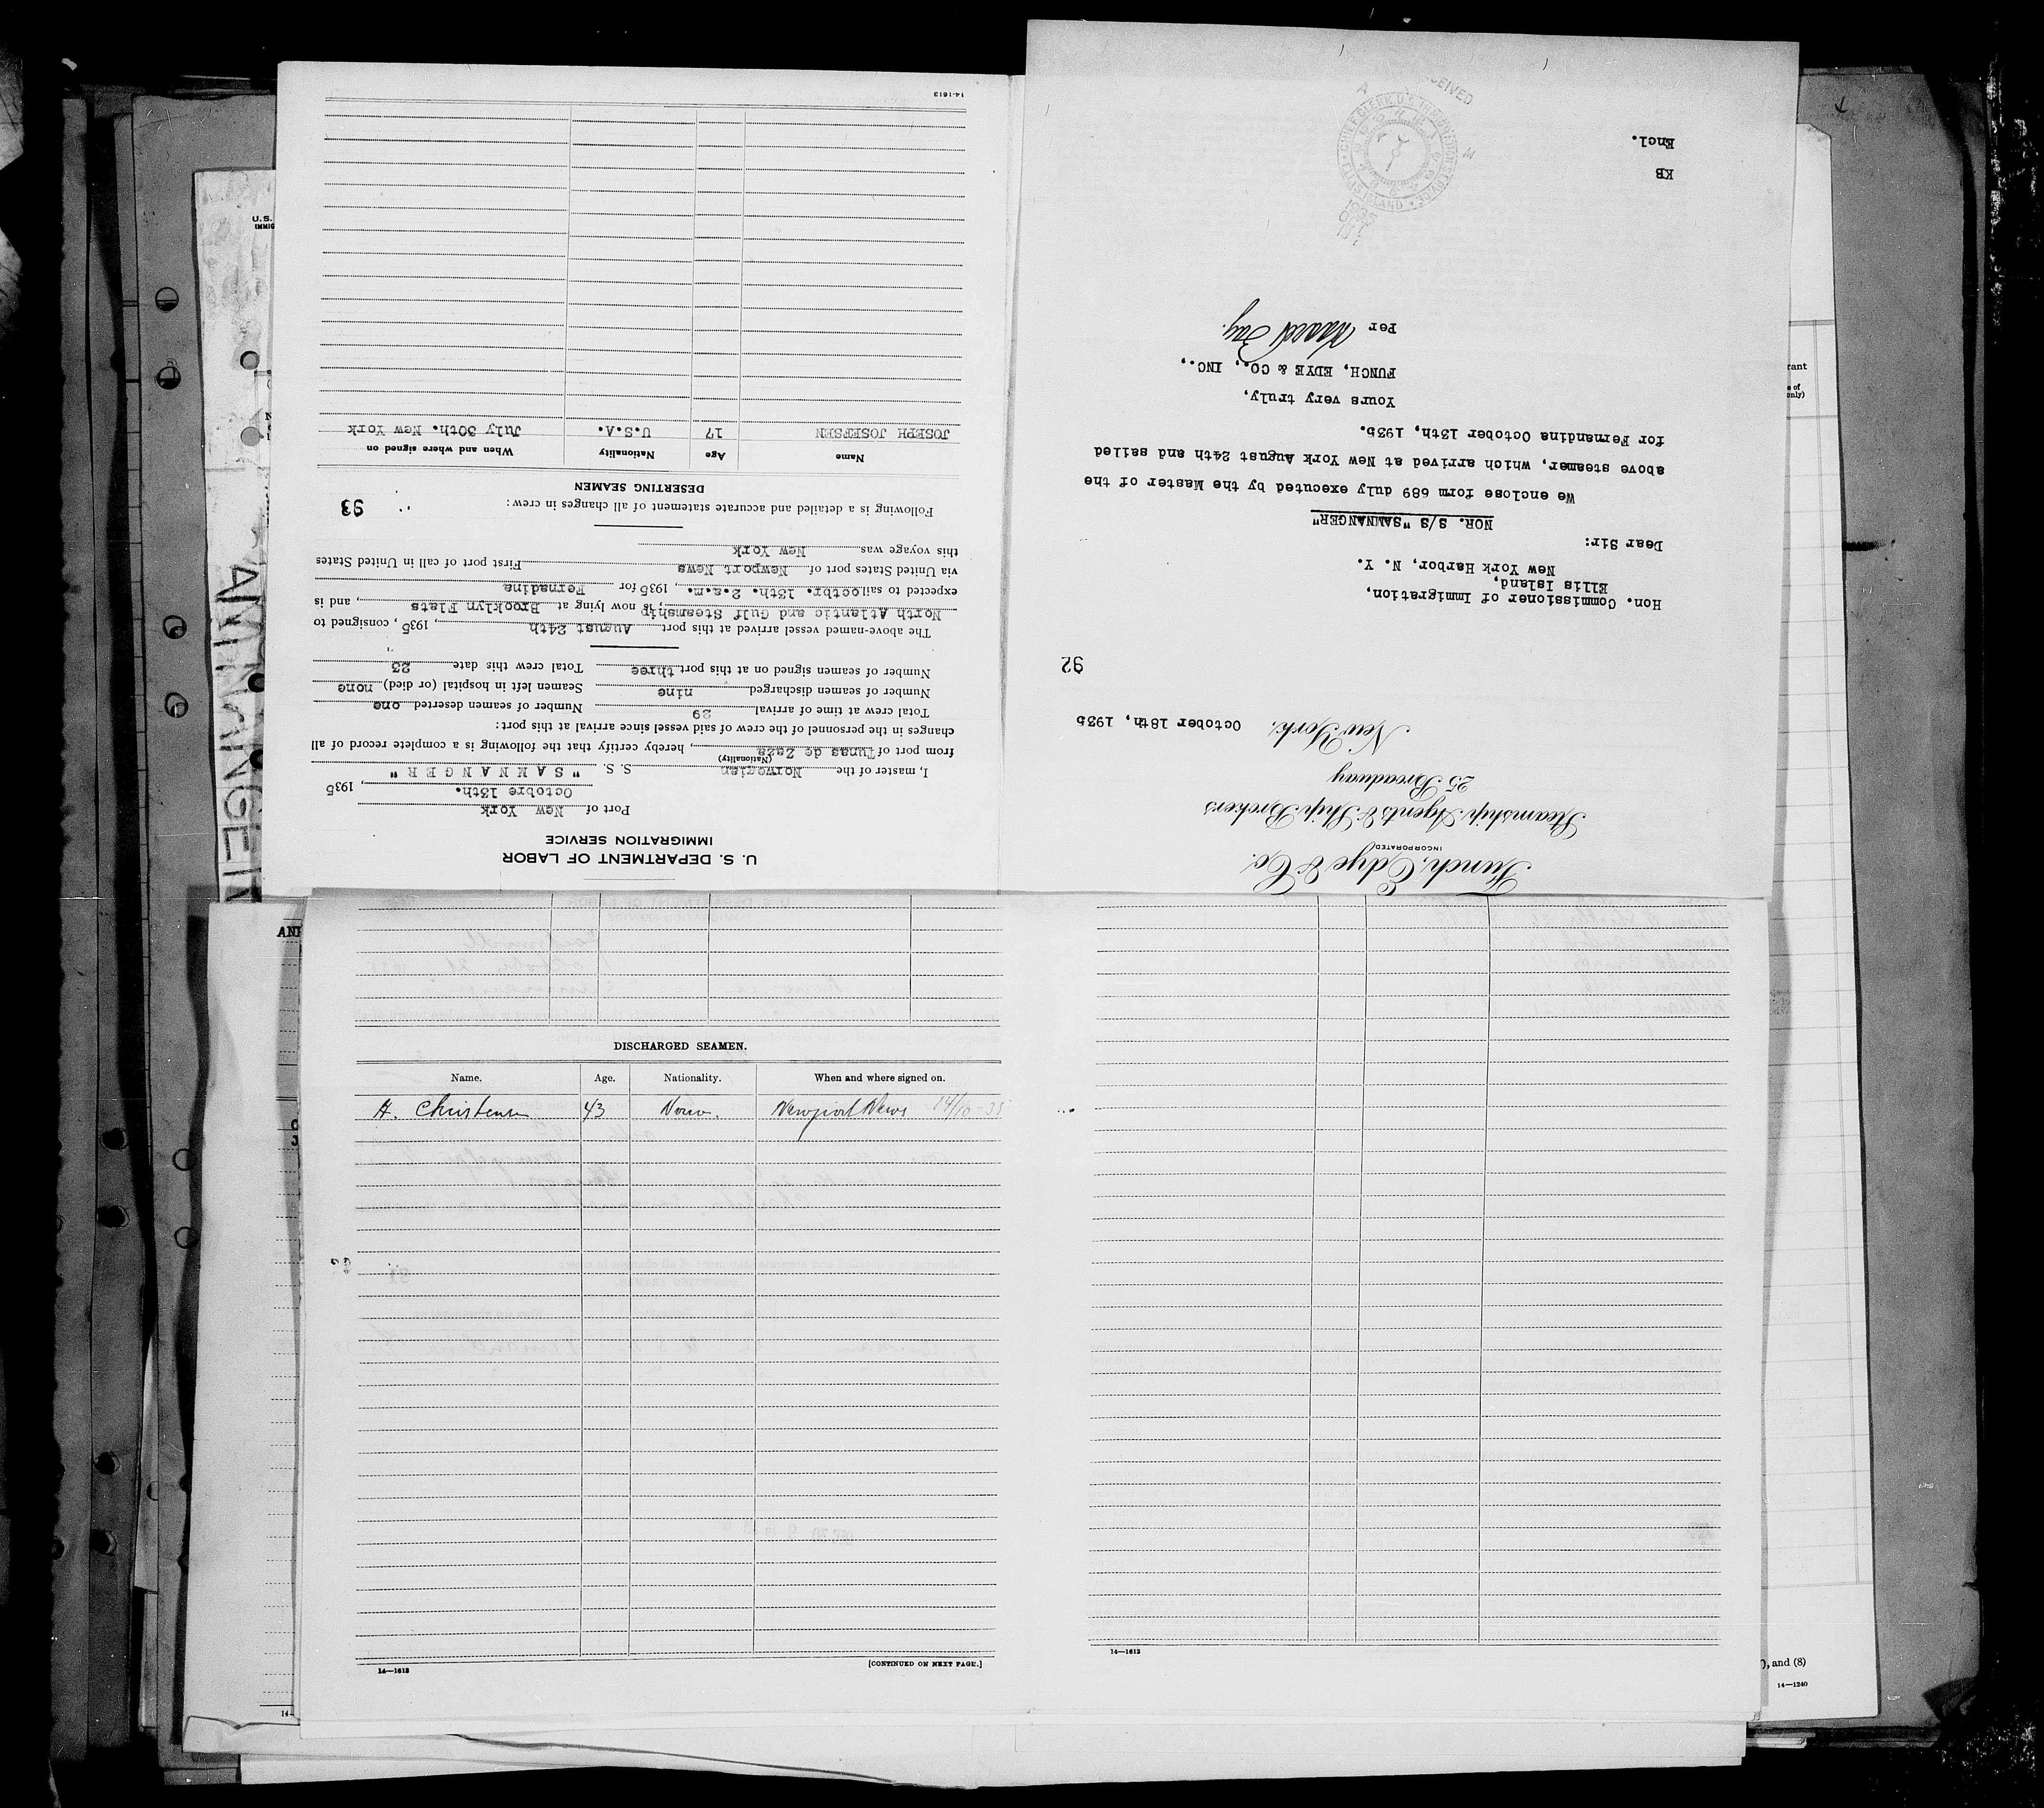 Funch, Edye & Co.
INCORPORATED
Steamship Agents & Ship Brokers
25 Broadway
New York, October 18th, 1935
92
Hon. Commissioner of Immigration,
Ellis Island,
New York Harbor, N. Y.
Dear Sir:
NOR. S/S "SAMNANGER"
We enclose form 689 duly executed by the Master of the
above steamer, which arrived at New York August 24th and sailed
for Fernandina October 13th, 1935.
Yours very truly,
FUNCH, EDYE & CO., INC.,
Per
KB
Encl.
U. S. DEPARTMENT OF LABOR
IMMIGRATION SERVICE
Port of New York
Octobre 13th. , 1935
I, master of the Norwegian S. S. "SAMNANGER"
(Nationality)
from port of Tunas de Zaza , hereby certify that the following is a complete record of all
changes in the personnel of the crew of said vessel since arrival at this port:
Total crew at time of arrival 29 Number of seamen deserted one
Number of seamen discharged nine Seamen left in hospital (or died) none
Number of seamen signed on at this port three Total crew this date 23
The above-named vessel arrived at this port August 24th , 1935 , consigned to
North Atlantic and Gulf Steamship , is now lying at Brooklyn Flats , and is
expected to sail octbr. 13th. 2.a.m. , 1935 for Fernadina
via United States port of Newport News First port of call in United States
this voyage was New York
Following is a detailed and accurate statement of all changes in crew: 93
DESERTING SEAMEN
Name Age Nationality When and where signed on
JOSEPH JOSEFSEN 17 U.S.A. July 30th. New York
14-1613
DISCHARGED SEAMEN.
Name. Age. Nationality. When and where signed on.
H. Christensen 43 Norw. Newport News 14/10-35
14—1613 [CONTINUED ON NEXT PAGE.]
14—1613
), and (8)
14—1240